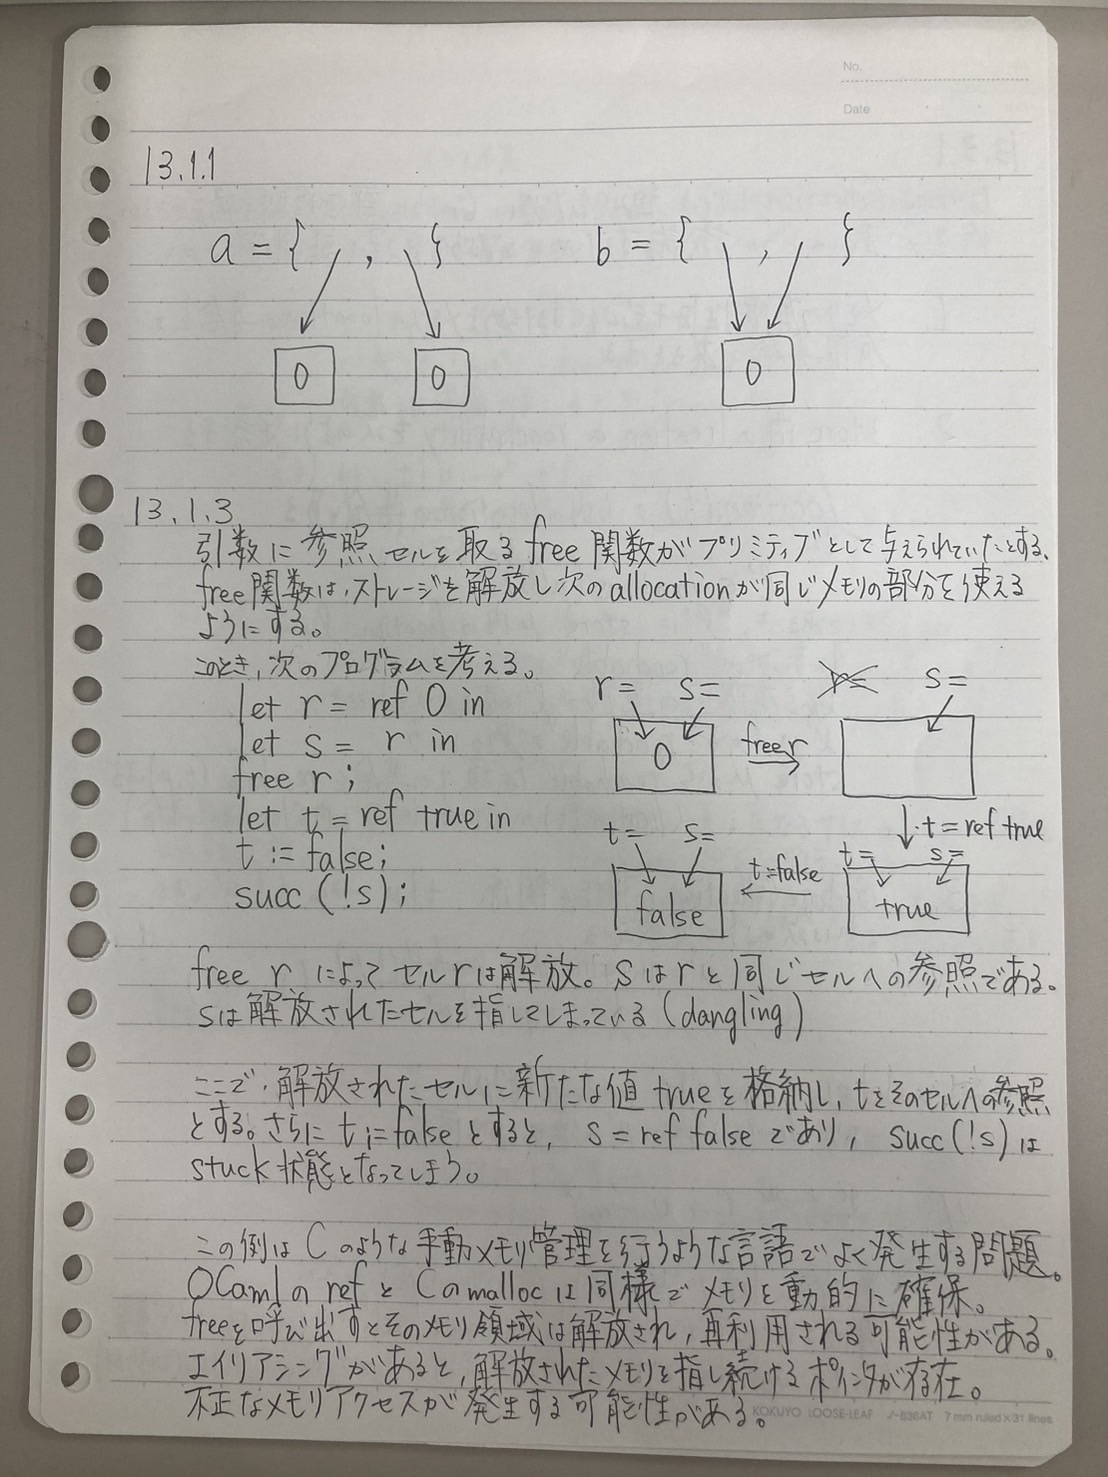 No.
Date
13.1.1
a = { , } b = { , }
0 0 0
13.1.3
引数に参照セルを取るfree関数がプリミティブとして与えられていたとする、
free関数は、ストレージを解放し次のallocationが同じメモリの部分を使える
ようにする。
このとき、次のプログラムを考える。
let r = ref 0 in
let s = r in
free r ;
let t = ref true in
t := false;
succ (!s);
r= s=
0
free r
r= s=
t = ref true
t= s=
true
t:=false
t= s=
false
free r によってセルrは解放。sはrと同じセルへの参照である。
sは解放されたセルを指してしまっている (dangling)
ここで、解放されたセルに新たな値 trueを格納し、tをそのセルへの参照
とする。さらに t:=false とすると、 s = ref false であり, succ (!s) は
stuck 状態となってしまう。
この例は Cのような手動メモリ管理を行うような言語でよく発生する問題。
OCamlの ref と Cのmalloc は同様でメモリを動的に確保。
freeを呼び出すとそのメモリ領域は解放され, 再利用される可能性がある。
エイリアシングがあると, 解放されたメモリを指し続けるポインタが存在。
不正なメモリアクセスが発生する可能性がある。
KOKUYO LOOSE-LEAF ノ-836AT 7 mm ruled×31 lines